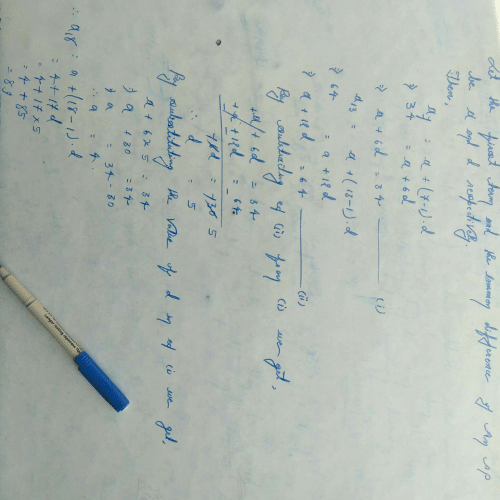 Let the first term and the common difference of an AP
be a and d respectively.
Then,
a₇ = a + (7-1).d
⇒ 34 = a + 6d
⇒ a + 6d = 34 ——— (i)
a₁₃ = a + (13-1).d
⇒ 64 = a + 12d
⇒ a + 12d = 64 ——— (ii)
By subtracting eq (ii) from (i) we get,
+a + 6d = 34
+a + 12d = 64
- -
∴ d = 5
By substituting the value of d in eq (i) we get,
a + 6×5 = 34
⇒ a + 30 = 34
⇒ a = 34-30
∴ a = 4.
∴ a₁₈ = a + (18-1).d
= 4 + 17d
= 4 + 17×5
= 4 + 85
= 89